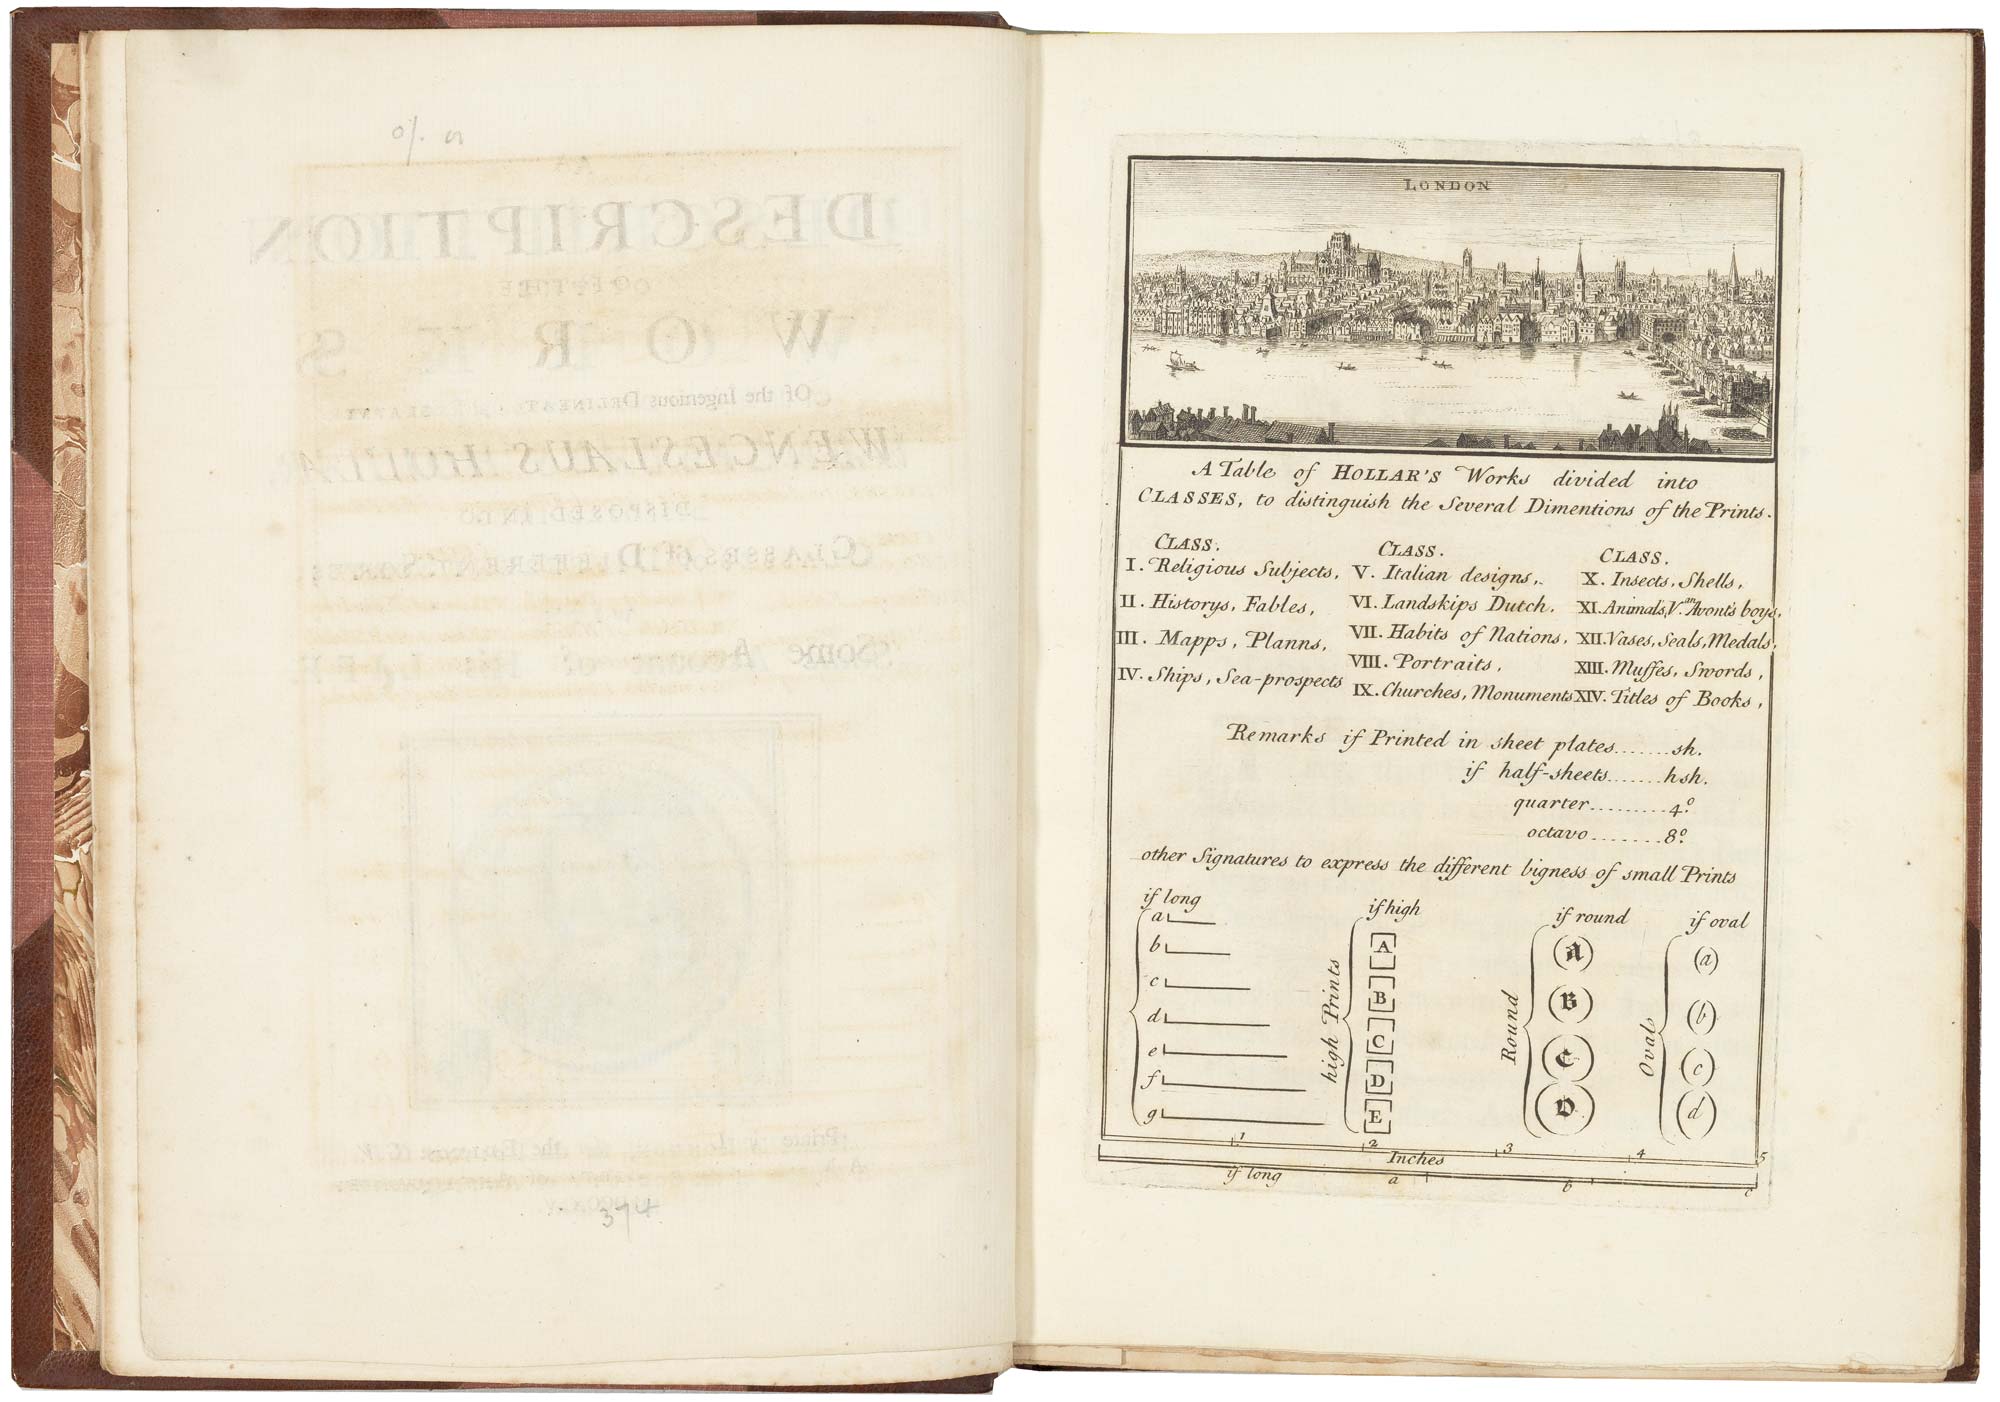 374
LONDON
A Table of HOLLAR'S Works divided into
CLASSES, to distinguish the Several Dimentions of the Prints.
CLASS.
I. Religious Subjects,
II. Historys, Fables,
III. Mapps, Planns,
IV. Ships, Sea-prospects
CLASS.
V. Italian designs,
VI. Landskips Dutch.
VII. Habits of Nations,
VIII. Portraits,
IX. Churches, Monuments
CLASS.
X. Insects, Shells,
XI. Animals, V.an Avont's boys,
XII. Vases, Seals, Medals,
XIII. Muffes, Swords,
XIV. Titles of Books,
Remarks if Printed in sheet plates.......sh.
if half-sheets.......hsh.
quarter.........4.o
octavo........8.o
other Signatures to express the different bigness of small Prints
if long
a
b
c
d
e
f
g
if high
high Prints
A
B
C
D
E
if round
Round
A
B
C
D
if oval
Oval
a
b
c
d
1 2 3 4 5
Inches
if long a b c